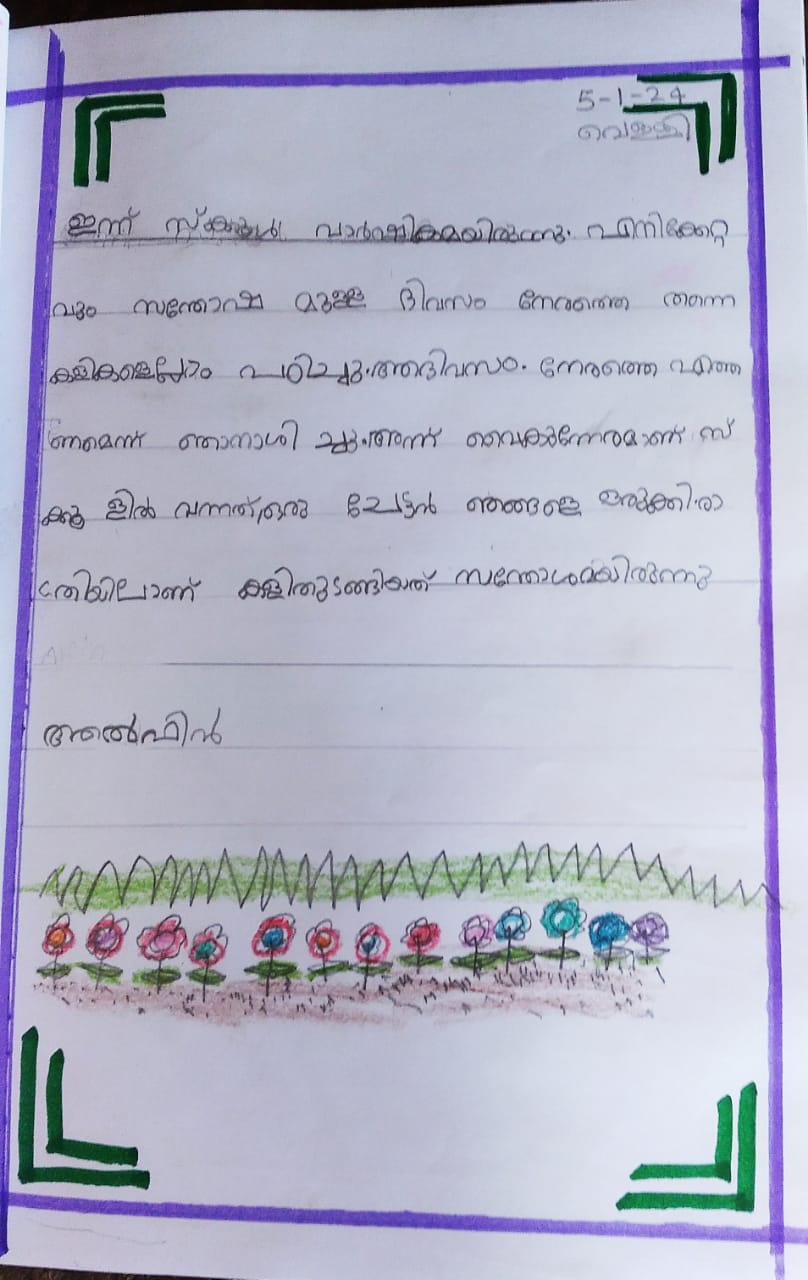 5-1-24
വെള്ളി
ഇന്ന് സ്കൂൾ വാർഷികമയിരുന്നു. എനിക്കേറ്റ
വും സന്തോഷ മുള്ള ദിവസം നേരത്തെ തന്നെ
കളികളെല്ലാം പഠിച്ചു.ആദിവസം. നേരത്തെ എത്ത
ണമെന്ന് ഞാനാശി ച്ചു.അന്ന് വൈകുന്നേരമാണ് സ്
കൂ ളിൽ വന്നത്,ഒരു ചേട്ടൻ ഞങ്ങളെ ഒരുക്കി.രാ
ത്രിയിലാണ് കളിതുടങ്ങിയത് സന്തോശമയിരുന്നു
അൽഫിൻ